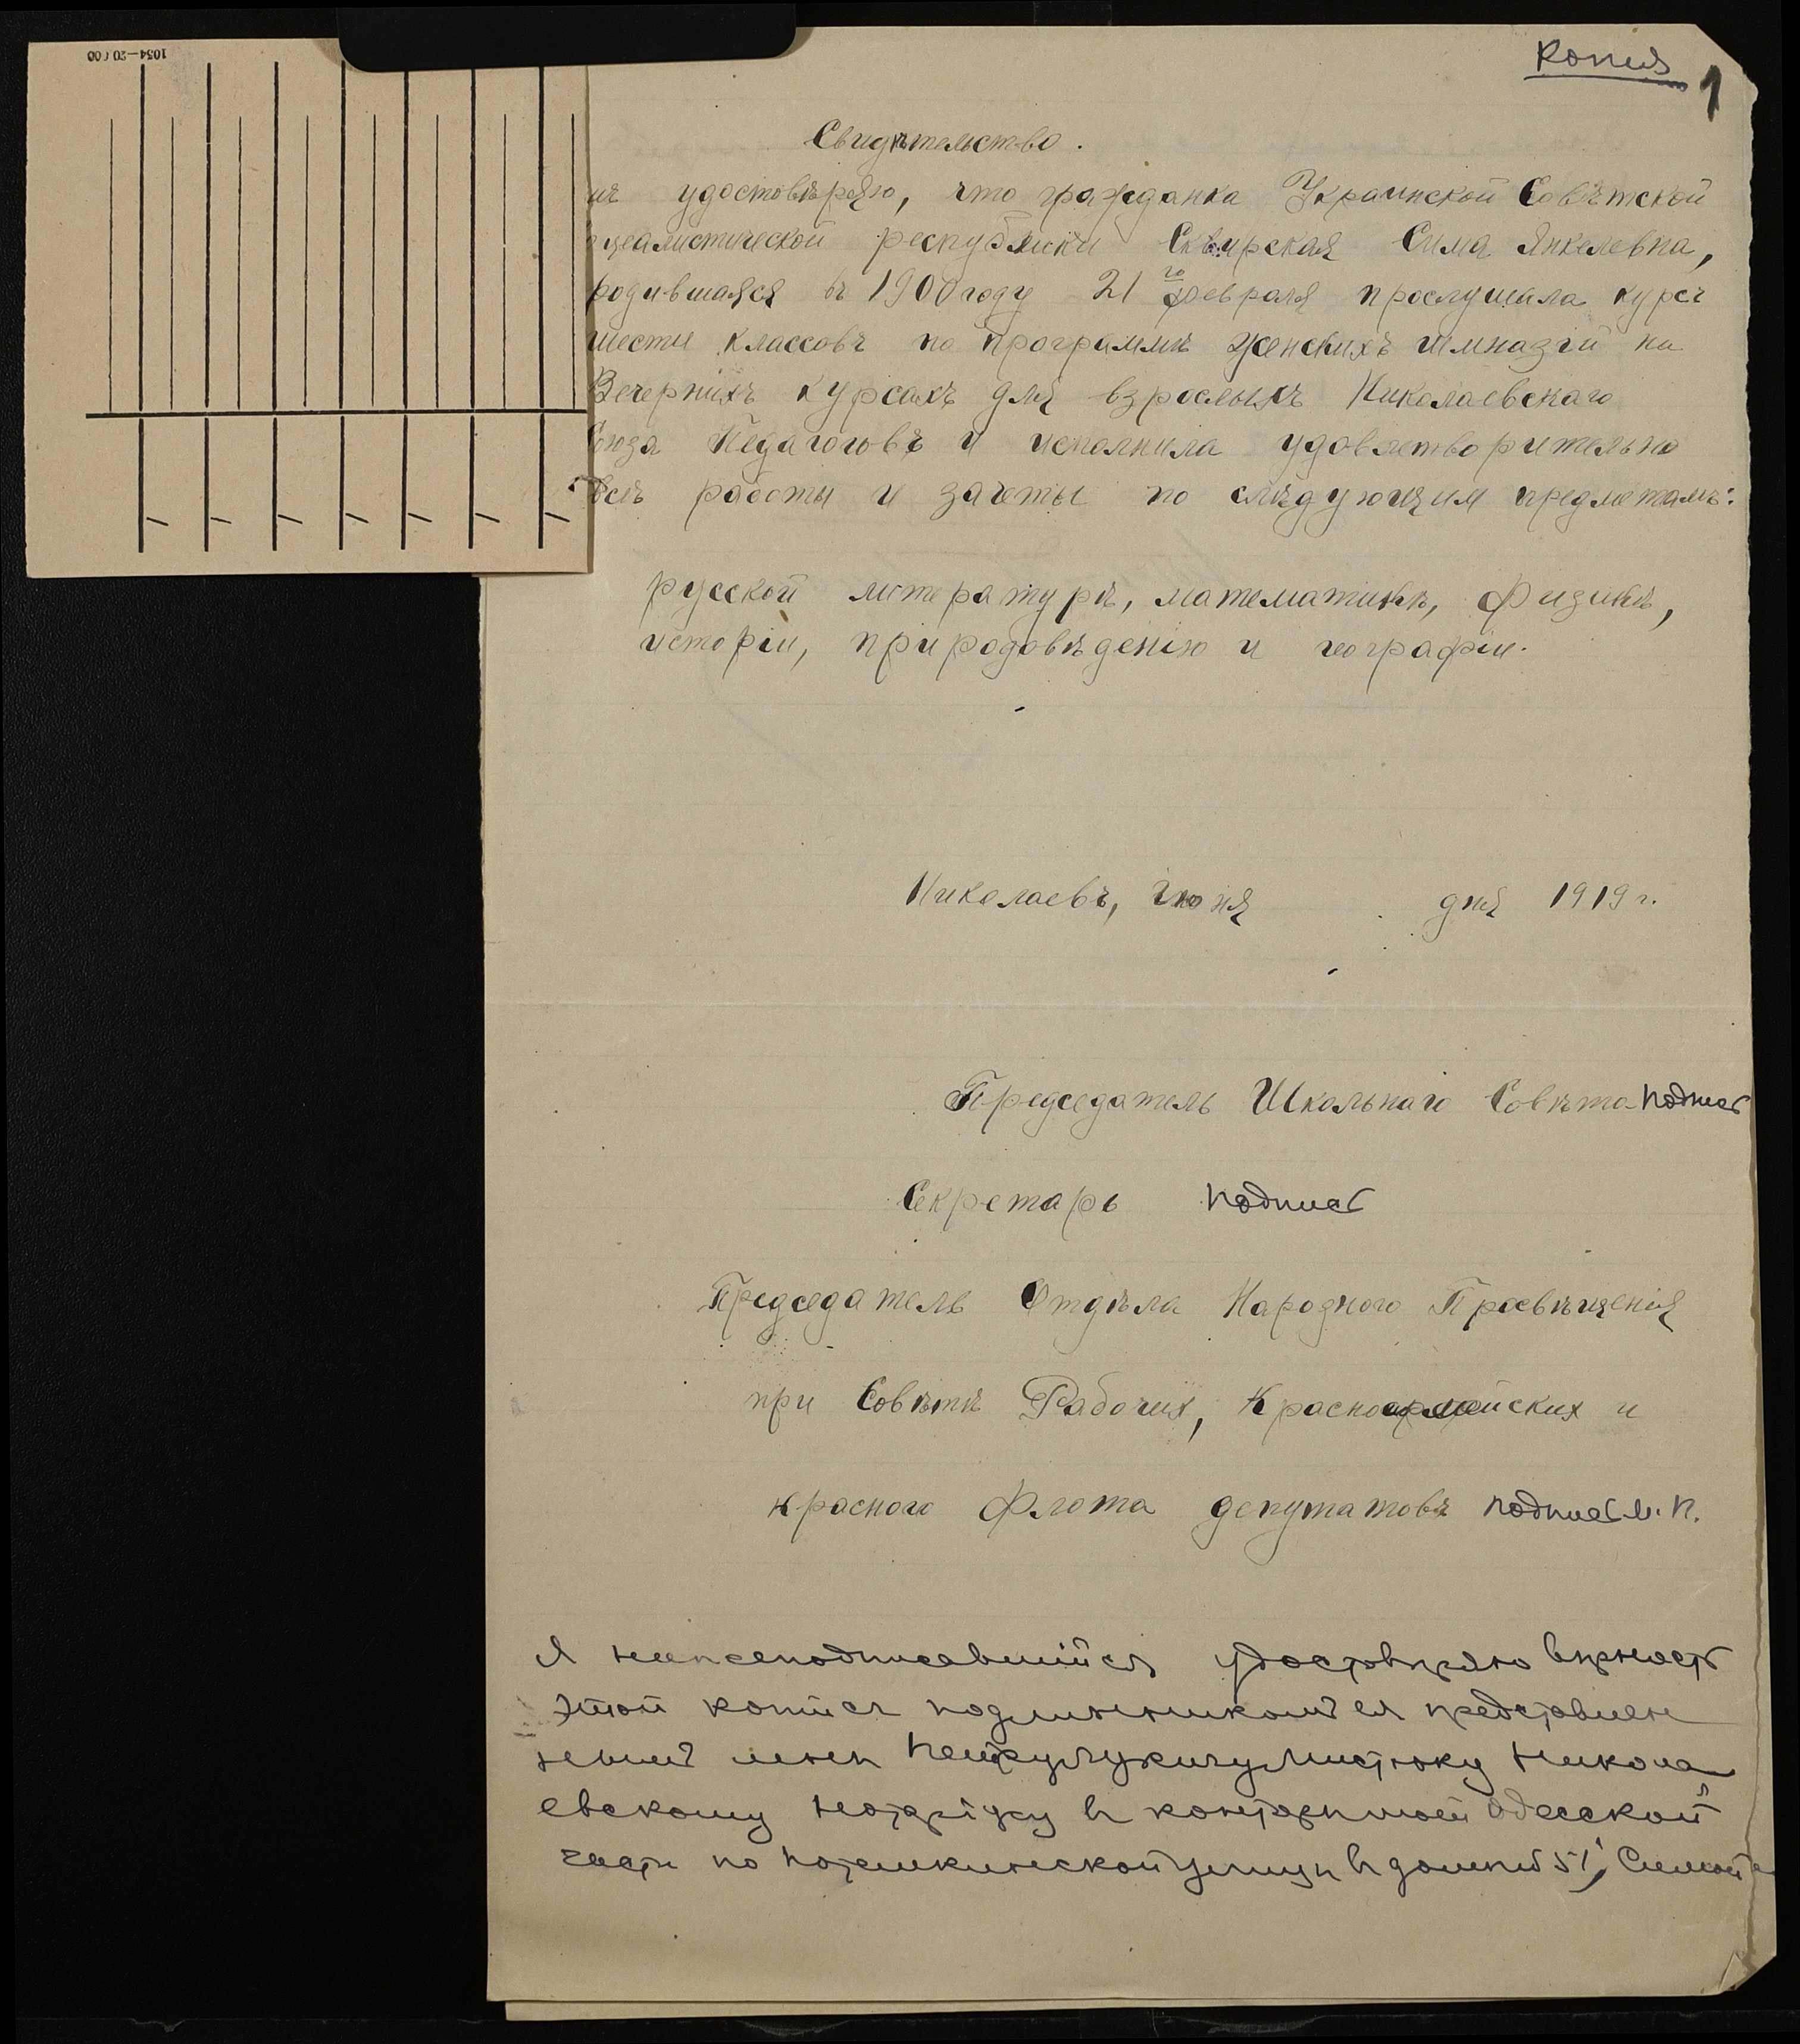 1054—20 000
Копия
1
Свидѣтельство.
удостовѣряю, что гражданка Украинской Совѣтской
республики Сквирская Сима Янкелевна,
родившаяся въ 1900 году 21го февраля прослушала курсъ
шести классовъ по программѣ женскихъ гимназій на
Вечернихъ курсахъ для взрослыхъ Николаевскаго
Союза Педагоговъ и исполнила удовлетворительно
всѣ работы и зачеты по слѣдующим предметамъ:
русской литературѣ, математикѣ, физикѣ,
исторіи, природовѣденію и географіи.
Николаевъ, Iюня дня 1919 г.
Председатель Школьнаго Совѣта - подпись
Секретарь подпись
Председатель Отдѣла Народного Просвѣщенія
при Совѣтѣ Рабочих, Красноармейских и
красного Флота депутатовъ подпись М.П.
Я нижеподписавшийся удостовѣряю вѣрность
этой копии съ подлинникомъ ея представлен
нымъ мнѣ Мистюку Никола
евскому Нотаріусу в конторѣ моей Одесской
части по Потемкинской улицѣ в домѣ № 51, Симой